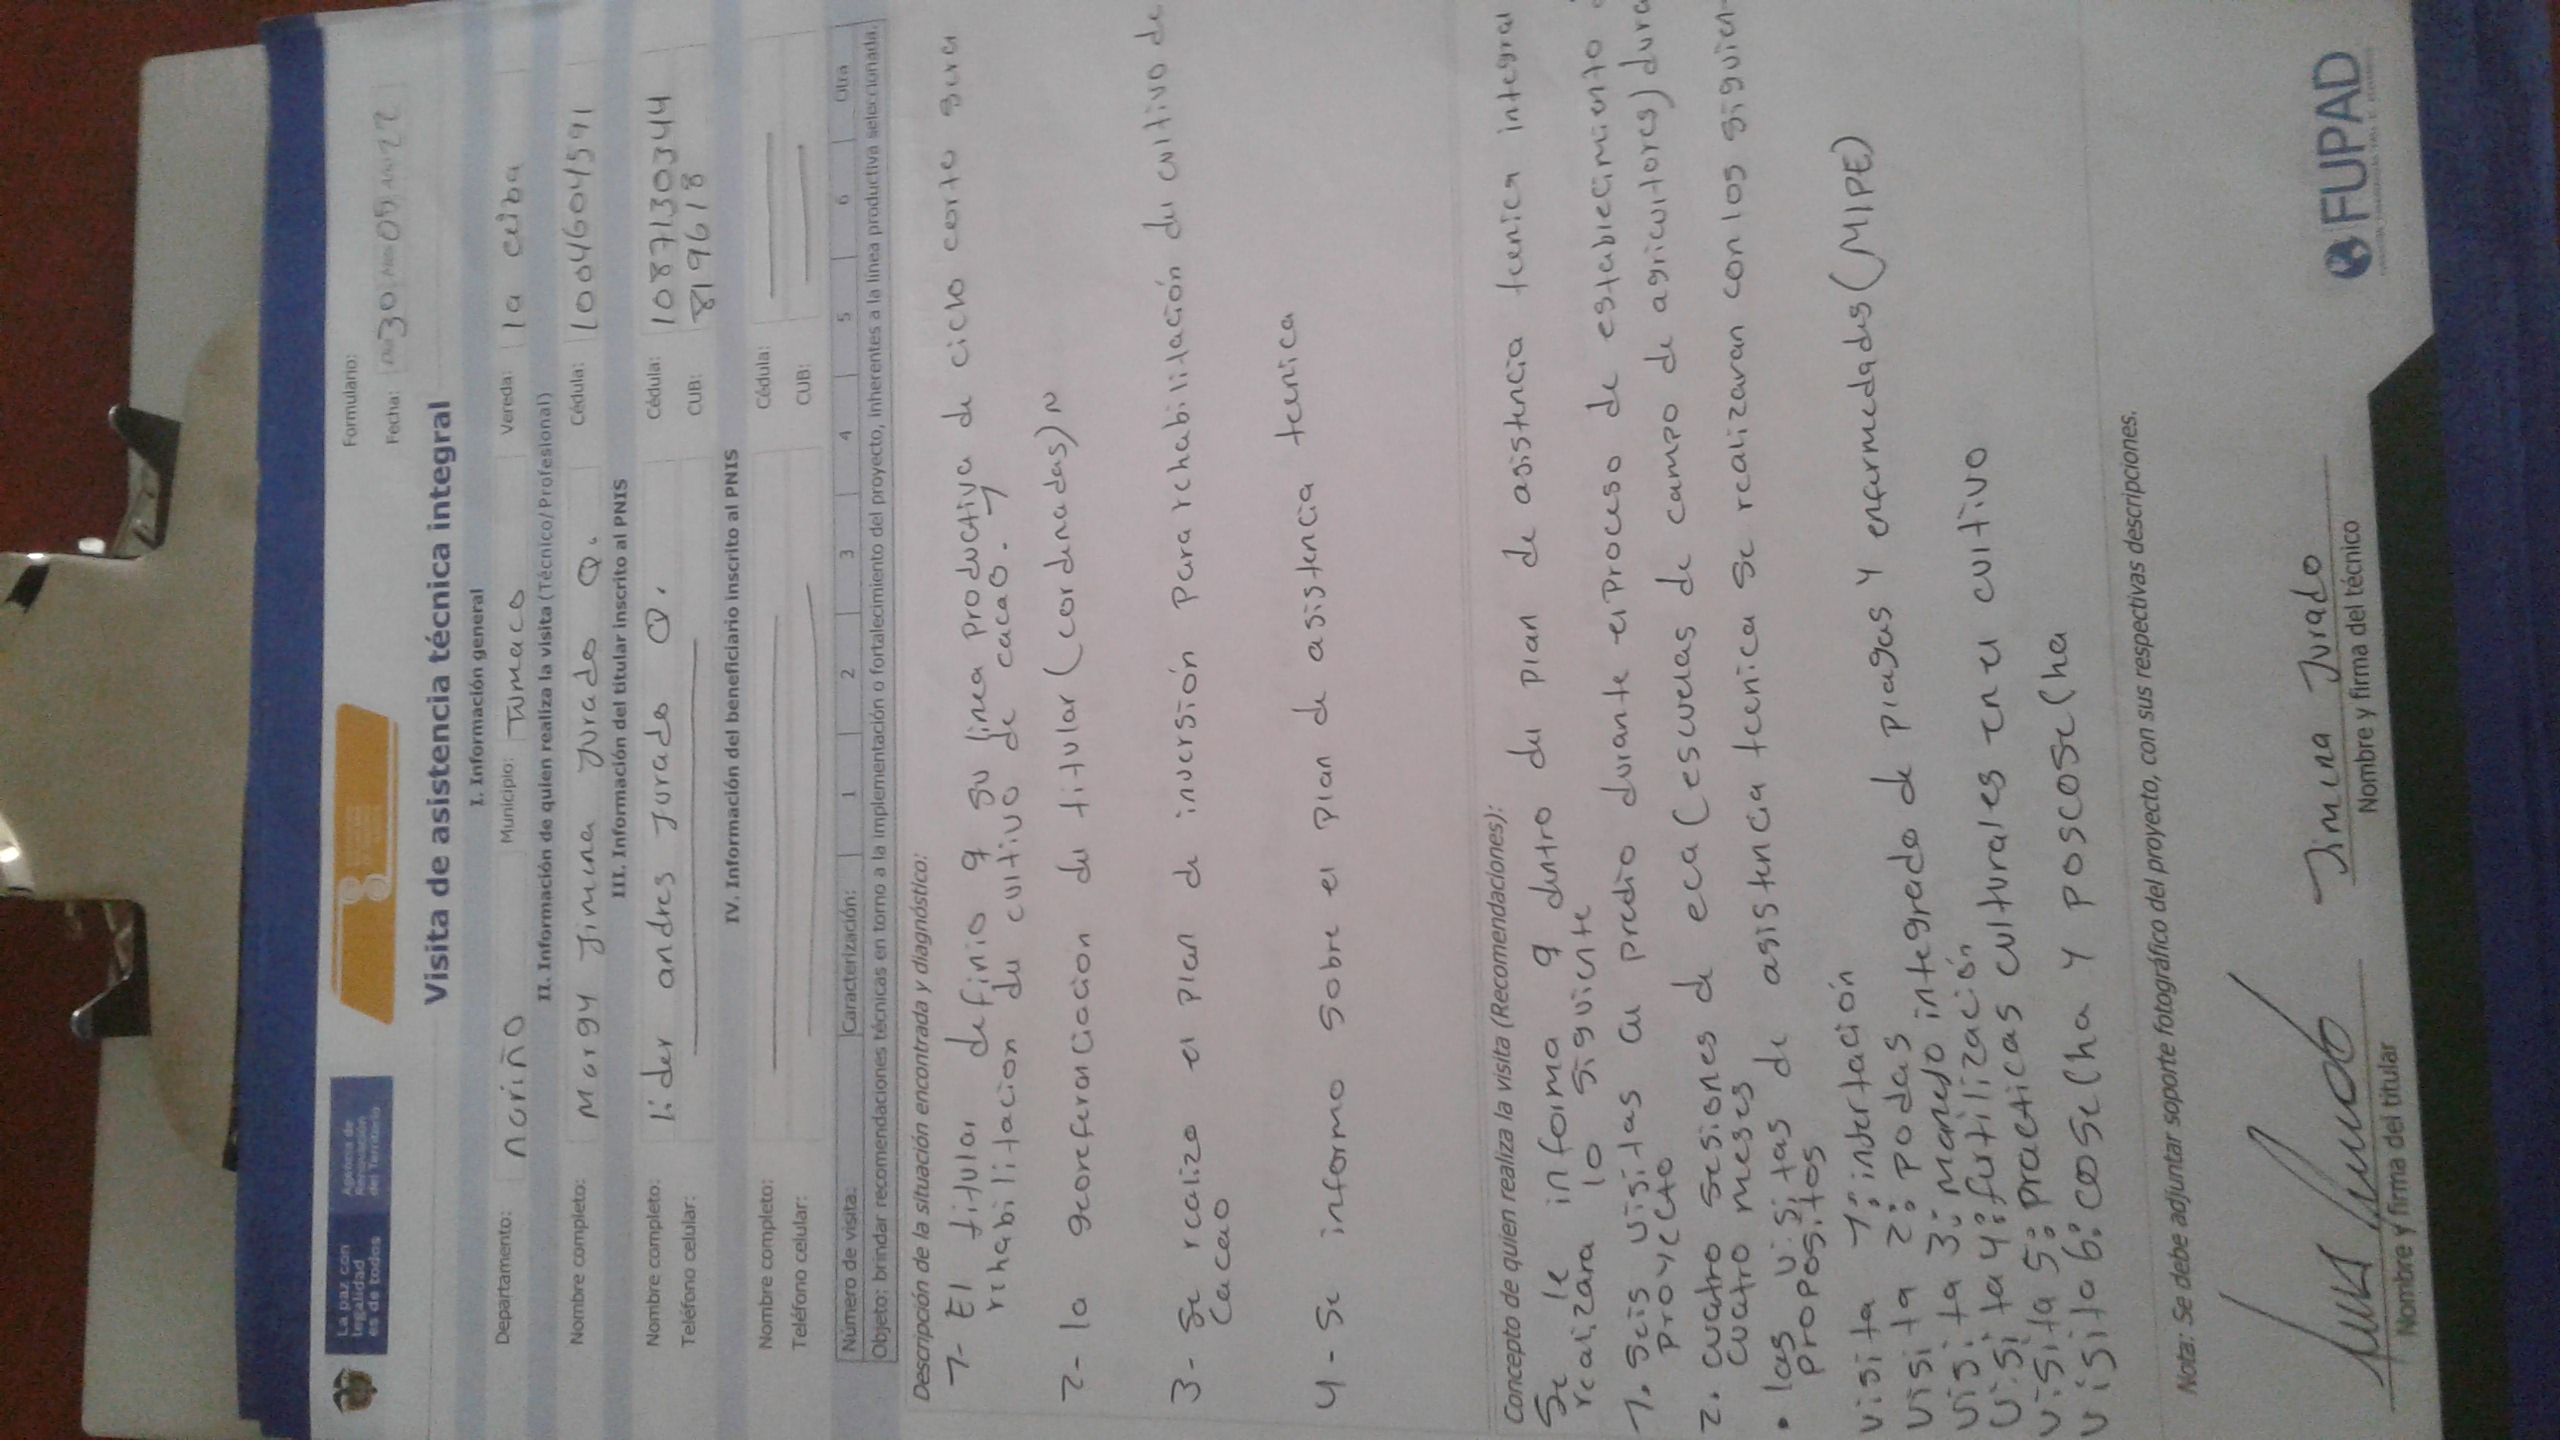 La paz con
legalidad
es de todos
Agencia de
Renovación
del Territorio
Formulario:
Fecha: Día 30 Mes 05 Año 22
Visita de asistencia técnica integral
I. Información general
Departamento: nariño Municipio: Tumaco Vereda: la ceiba
II. Información de quien realiza la visita (Técnico/Profesional)
Nombre completo: Margy Jimena Jurado Q. Cédula: 1004604591
III. Información del titular inscrito al PNIS
Nombre completo: lider andres Jurado Q. Cédula: 1087130344
Teléfono celular: CUB: 819618
IV. Información del beneficiario inscrito al PNIS
Nombre completo: Cédula:
Teléfono celular: CUB:
Número de visita: Caracterización: 1 2 3 4 5 6 Otra
Objeto: brindar recomendaciones técnicas en torno a la implementación o fortalecimiento del proyecto, inherentes a la línea productiva seleccionada.
Descripción de la situación encontrada y diagnóstico:
1- El titular definio q su linea productiva de ciclo corto sera
rehabilitacion del cultivo de cacao. y
2- la georeferanciacion del titular (cordenadas) N
3- Se realizo el plan de inversión para rehabilitación del cultivo de
cacao
4- Se informo sobre el plan de asistencia tecnica
Concepto de quien realiza la visita (Recomendaciones):
Se le informa q dentro del plan de asistencia tecnica integral
realizara lo siguiente
1. seis visitas al predio durante el proceso de establecimiento
proyecto
2. cuatro sesiones de eca (escuelas de campo de agricultores) dura
cuatro meses
• las visitas de asistencia tecnica se realizaran con los siguien-
propositos
visita 1: indertación
visita 2: podas
visita 3: manejo integrado de plagas y enfermedades (MIPE)
visita 4: fertilización
visita 5: practicas culturales en el cultivo
visita 6: cosecha y poscosecha
Nota: Se debe adjuntar soporte fotográfico del proyecto, con sus respectivas descripciones.
Jimena Jurado
Nombre y firma del titular
Nombre y firma del técnico
FUPAD